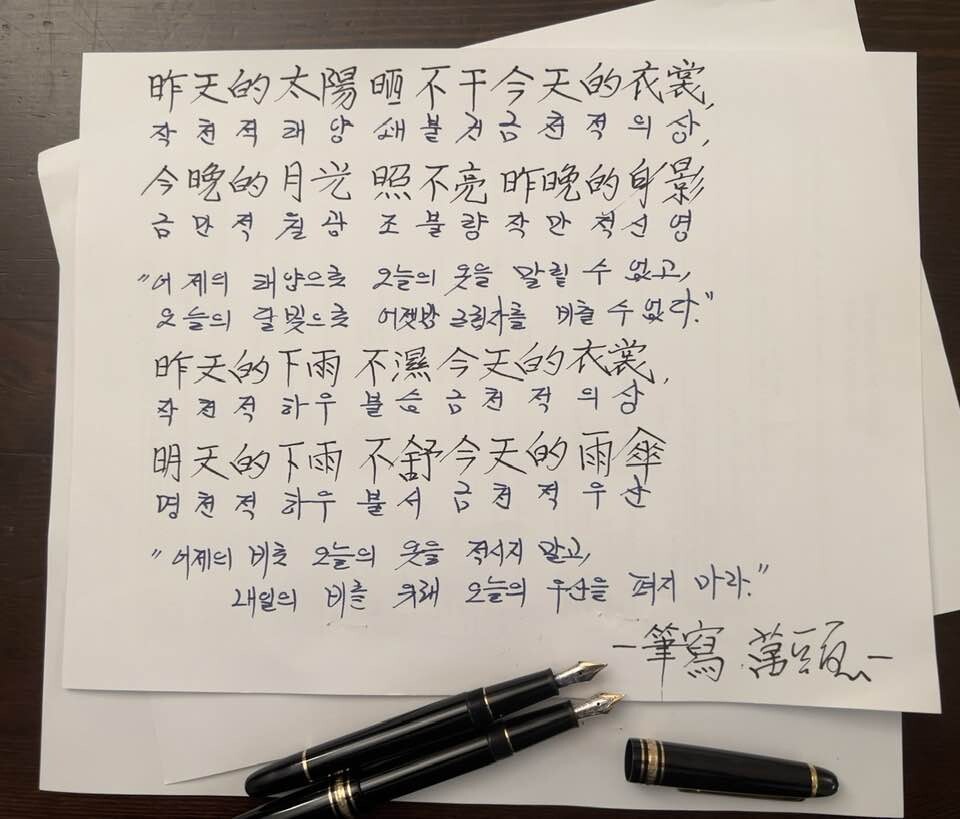 昨天的太陽 晒不干今天的衣裳,
작천적태양 쇄불건금천적의상,
今晚的月光 照不亮 昨晚的身影
금만적월광 조불량작만적신영
"어제의 태양으로 오늘의 옷을 말릴 수 없고,
오늘의 달빛으로 어젯밤 그림자를 비출 수 없다."
昨天的下雨 不濕今天的衣裳,
작천적하우 불습금천적의상
明天的下雨 不舒今天的雨傘
명천적하우 불서금천적우산
"어제의 비로 오늘의 옷을 적시지 말고,
내일의 비를 위해 오늘의 우산을 펴지 마라."
-筆寫